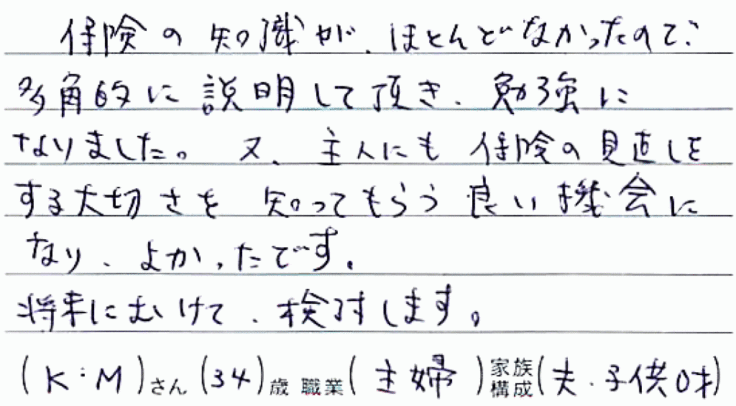 保険の知識が、ほとんどなかったので、
多角的に説明して頂き、勉強に
なりました。又、主人にも保険の見直しを
する大切さを知ってもらう良い機会に
なり、よかったです。
将来にむけて、検討します。
(K・M)さん(34)歳 職業(主婦)家族構成(夫・子供0才)